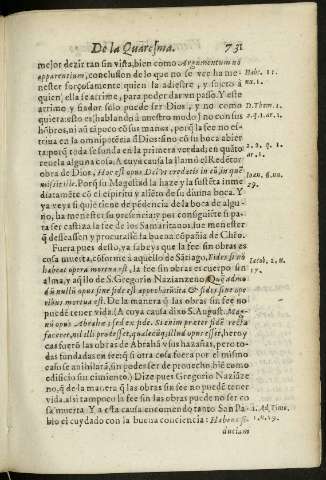 De la Quaresma. 731
mejor dezir tan sin vista, bien como Argumentum nõ
apparentium, conclusion de lo que no se vee ha me-
nester forçosamente quien la adiestre, y sujeto à
quien ella se acrime, para poder dar vn passo. Y este
acrimo y fiador solo puede ser Dios, y no como
quiera: esto es (hablando à nuestro modo) no con sus
hõbros, ni aũ tãpoco cõ sus manos, porq̃ la fee no es-
triua en la omnipotẽcia de Dios: sino cõ su boca abier
ta: porq̃ toda se funda en la primera verdad; en quãto
reuela alguna cosa. A cuya causa la llamó el Redẽtor
obra de Dios, Hoc est opus Dei vt credatis in eũ, in quẽ
misit ille. Porq̃ su Magestad la haze y la sustẽta inme
diatamẽte cõ el espiritu y aliẽto de su diuina boca. Y
ya veys si quiẽ tiene depẽdencia de la boca de algu-
no, ha menester su presencia: y por consiguiẽte si pa-
ra ser castiza la fee de los Samaritanos, fue menester
q̃ deseassen y procurassen la buena cõpañia de Chr̃o.
Fuera pues desto, ya sabeys que la fee sin obras es
cosa muerta, cõforme à aquello de Sãtiago, Fides si nõ
habeat opera mortua est, la fee sin obras es cuerpo sin
alma, y aq̃llo de S. Gregorio Nazianzeno: Quẽadmo
dũ nullũ opus sine fide est approbatũ, ita & fides sine ope
ribus mortua est. De la manera q̃ las obras sin fee no
puedẽ tener vida. (A cuya causa dixo S. August. Mag-
nũ opus Abrahæ; sed ex fide. Si enim præter fidẽ recta
faceret, nulli prodesset, qualecũq; illud opus esset, hero y
cas fuerõ las obras de Abrahã y sus hazañas, pero to-
das fundadas en fee: q̃ si otra cosa fuera por el mismo
caso se aniḣilarã, sin poder ser de prouecho, biẽ como
edificio sin cimiento.) Dize pues Gregorio Naziãze
no, q̃ de la manera q̃ las obras sin fee no puedẽ tener
vida, assi tampoco la fee sin las obras puede no ser co
sa muerta. Y a esta causa encomendo tanto San Pa-
blo el cuydado con la buena conciencia: Habens fi-
dem
Habr. 11.
nu. 1.
D. Thom. 1.
2. q. 1. ar. 1.
2. 2. q. 1.
ar. 1.
Ioan. 6. nu.
29.
Iacob. 2. n.
17.
1. Ad Timo.
1. n. 19.